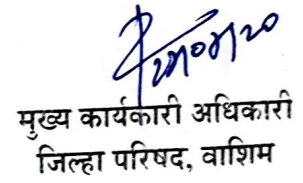 मुख्य कार्यकारी अधिकारी
जिल्हा परिषद, वाशिम